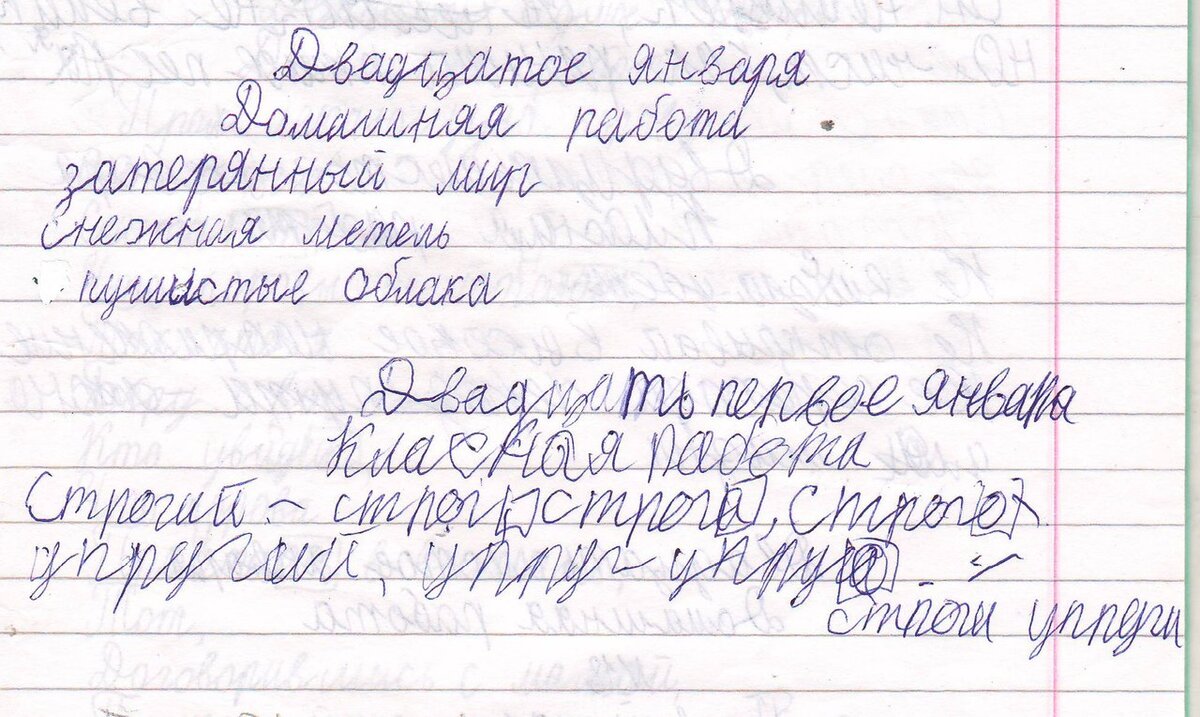 Двадцатое января
Домашняя работа
затерянный мир
снежная метель
пушистые облака
Двадцать первое января
Класная работа
Строгий – строг, строга, строго.
упругий, упруг – упруга.
строги упруги